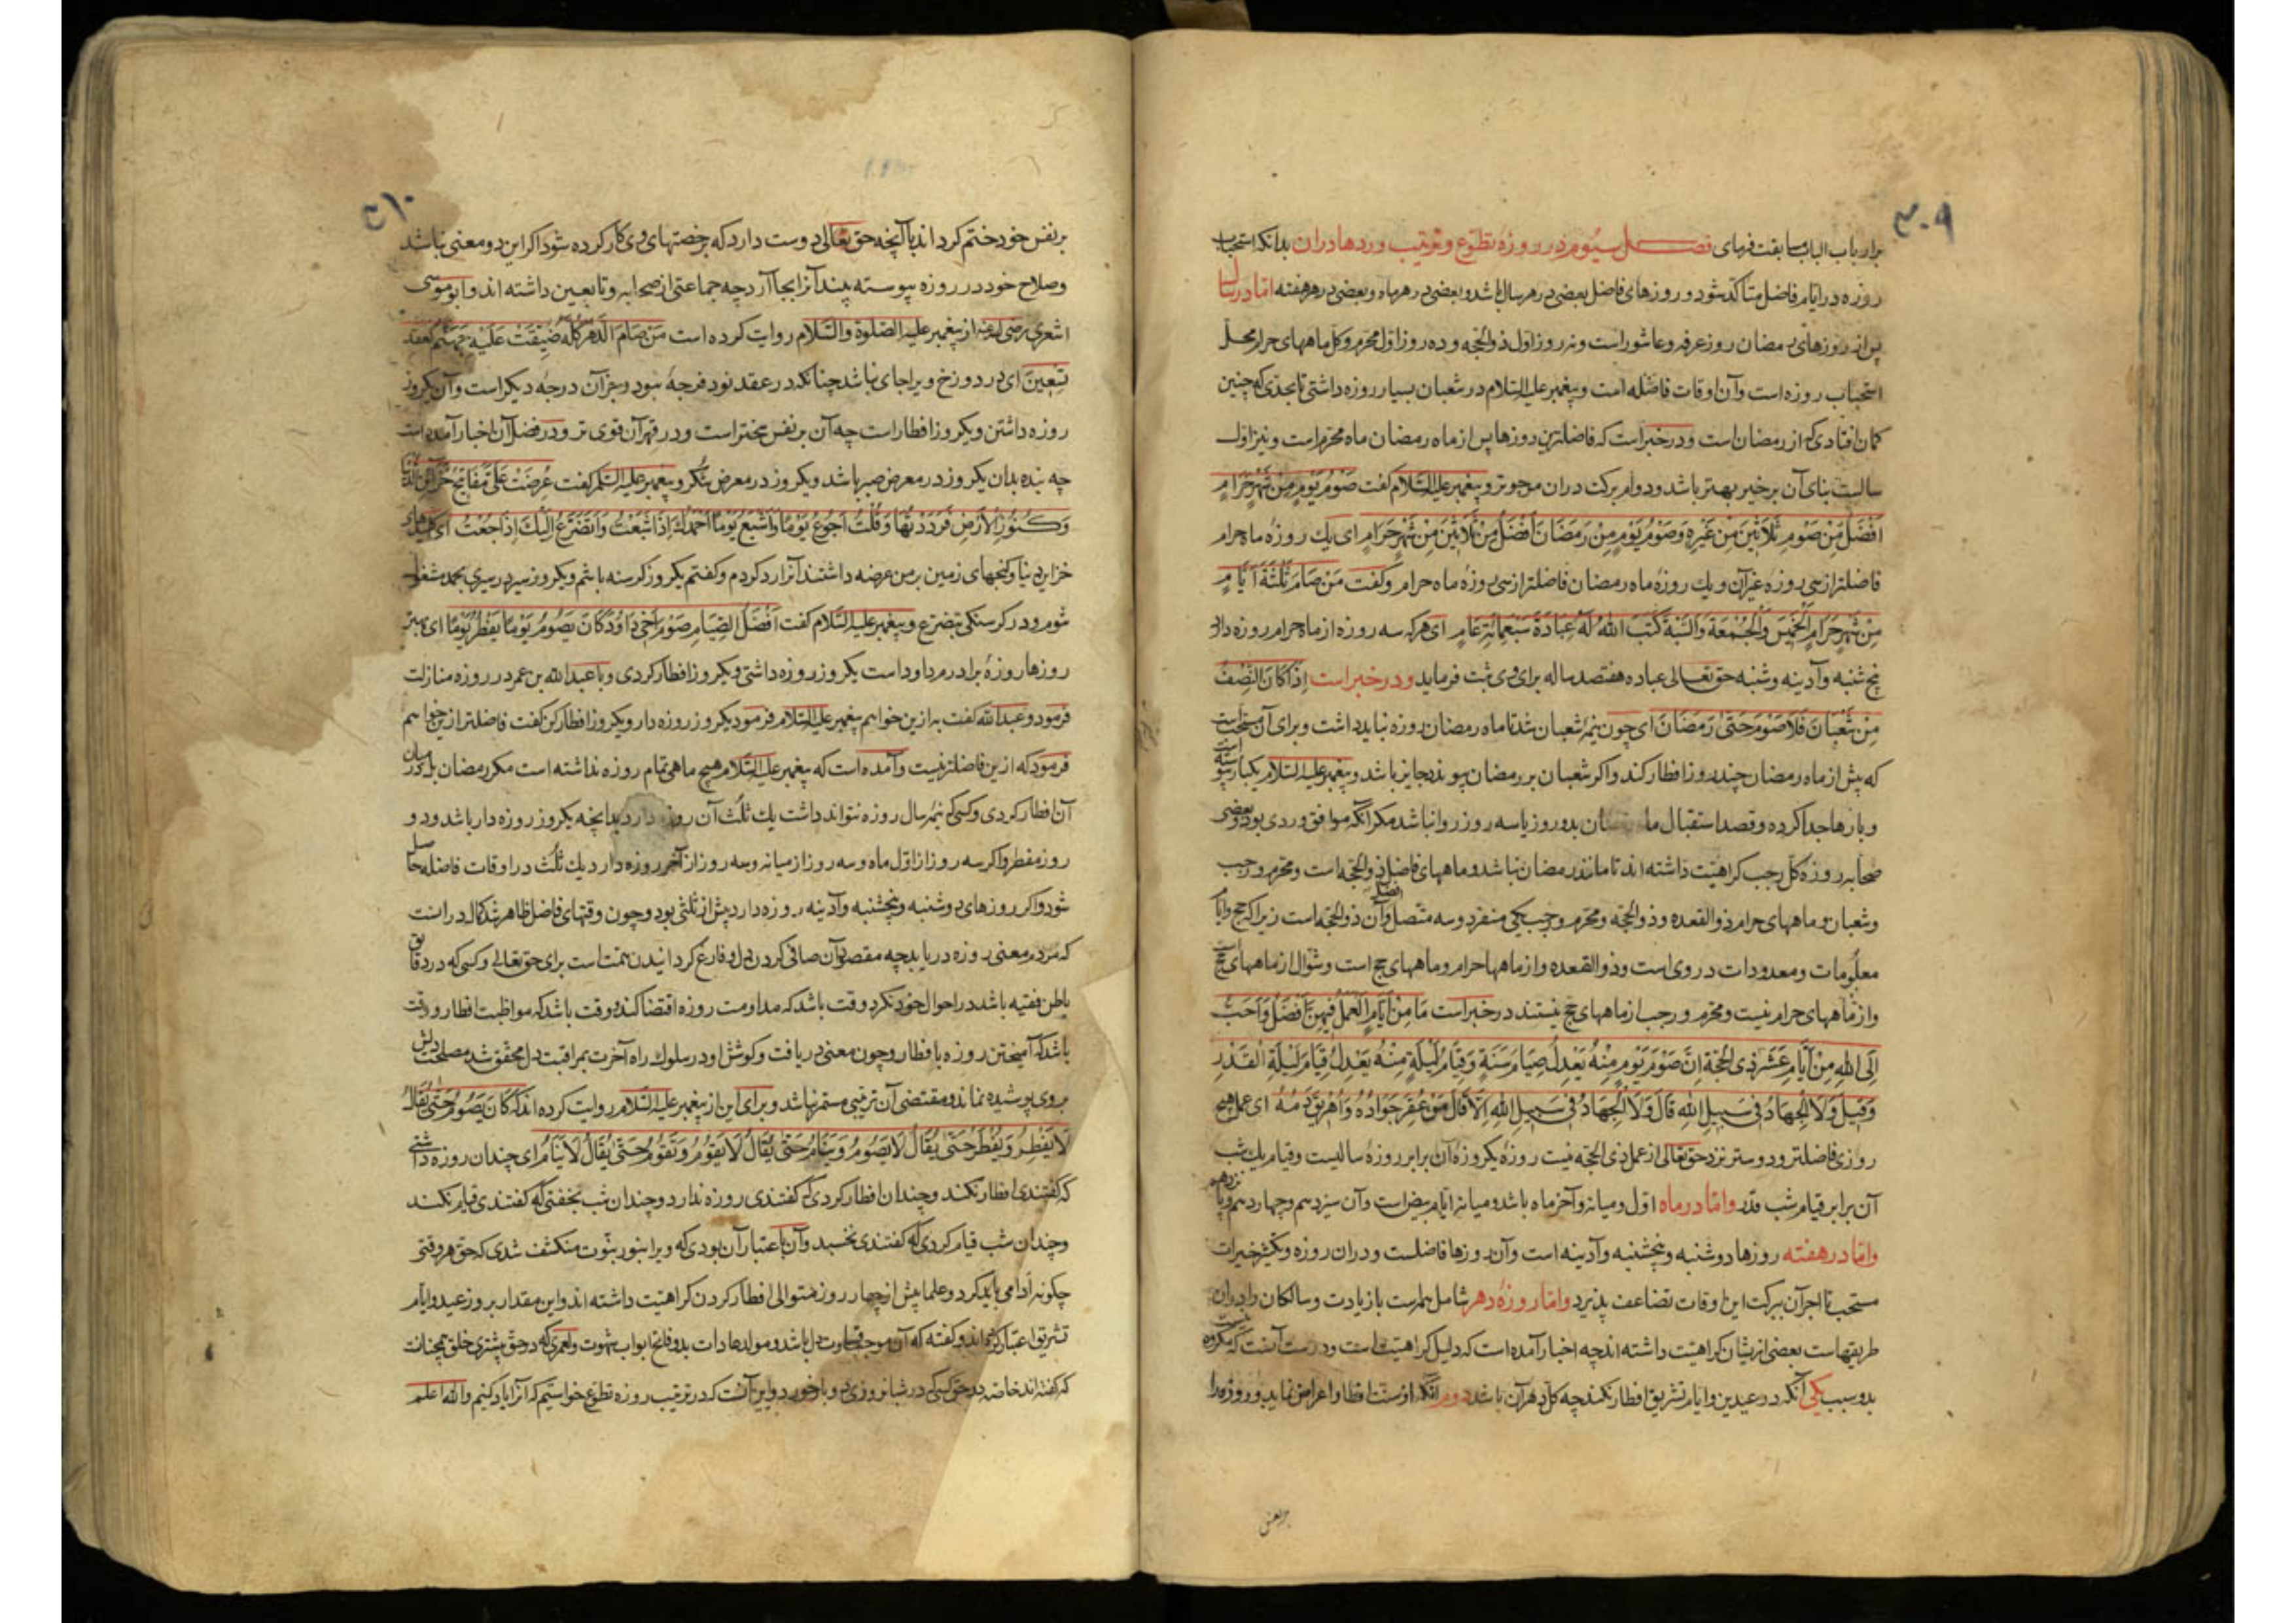 ۳۰۹
برارباب الباب مسابقت فرمای فصل سیوم در روزهٔ تطوع و ترتیب وردها دران بدانکه استحباب
روزه در ایام فاضل متاکد شود و روزهای فاضل بعضی در هر سال باشد و بعضی در هر ماه و بعضی در هر هفته اما در سال
پس از روزهای رمضان روز عرفه و عاشوراست و نه روز اول ذوالحجه و ده روز اول محرم و کل ماههای حرام محل
استحباب روزه است و آن اوقات فاضله است و پیغمبر علیه السلام در شعبان بسیار روزه داشتی تا بحدی که چنین
کمان افتادی که از رمضان است و در خبر است که فاضلترین روزها پس از ماه رمضان ماه محرم است و نیز اول
سالیست بنای آن بر خیر بهتر باشد و دوام برکت دران مرجوتر و پیغمبر علیه السلام کفت صَوْمُ یَوْمٍ مِنْ شَهْرٍ حَرَامٍ
اَفْضَلُ مِنْ صَوْمِ ثَلَاثِینَ مِنْ غَیْرِهِ وَصَوْمُ یَوْمٍ مِنْ رَمَضَانَ اَفْضَلُ مِنْ ثَلَاثِینَ مِنْ شَهْرٍ حَرَامٍ ای یک روزهٔ ماه حرام
فاضلتر از سی روزهٔ غیر آن و یک روزهٔ ماه رمضان فاضلتر از سی روزهٔ ماه حرام و کفت مَنْ صَامَ ثَلٰثَةَ اَیَّامٍ
مِنْ شَهْرٍ حَرَامٍ الْخَمِیسَ وَالْجُمُعَةَ وَالسَّبْتَ کَتَبَ اللّٰهُ لَهُ عِبَادَةَ سَبْعِمِائَةِ عَامٍ ای هر که سه روزه از ماه حرام روزه دارد
پنج شنبه و آدینه و شنبه حق تعالی عباده هفتصد ساله برای وی ثبت فرماید و در خبر است اِذَا کَانَ النِّصْفُ
مِنْ شَعْبَانَ فَلَا صَوْمَ حَتّٰی رَمَضَانَ ای چون نیمهٔ شعبان شد تا ماه رمضان روزه نباید داشت و برای آن مستحب است
که پیش از ماه رمضان چند روز افطار کند و اکر شعبان بر رمضان پیوندد جایز باشد و پیغمبر علیه السلام یکبار پیوسته است
و بارها جدا کرده و قصد استقبال ما بدو روز یا سه روز روا نباشد مکر آنکه موافق وردی بود و بعضی
صحابه روزه کل رجب کراهیت داشته اند تا مانند رمضان نباشد و ماههای فاضل ذوالحجه است و محرم و رجب
و شعبان و ماههای حرام ذوالقعده و ذوالحجه و محرم و رجب یکی منفرد و سه متصل و افضل آن ذوالحجه است زیرا که حج و ایام
معلومات و معدودات در وی است و ذوالقعده و از ماهها حرام و ماههای حج است و شوال از ماههای حج است
و از ماههای حرام نیست و محرم و رجب از ماههای حج نیستند در خبر است مَا مِنْ اَیَّامٍ الْعَمَلُ فِیهِنَّ اَفْضَلُ وَاَحَبُّ
اِلَی اللّٰهِ مِنْ اَیَّامِ عَشْرِ ذِی الْحِجَّةِ اِنَّ صَوْمَ یَوْمٍ مِنْهُ یَعْدِلُ صِیَامَ سَنَةٍ وَقِیَامُ لَیْلَةٍ مِنْهُ یَعْدِلُ قِیَامَ لَیْلَةِ الْقَدْرِ
وَقِیلَ وَلَا الْجِهَادُ فِی سَبِیلِ اللّٰهِ قَالَ وَلَا الْجِهَادُ فِی سَبِیلِ اللّٰهِ اِلَّا مَنْ عُقِرَ جَوَادُهُ وَاُهْرِیقَ دَمُهُ ای عمل هیچ
روزی فاضلتر و دوستر نزد حق تعالی از عمل ذی الحجه نیست روزهٔ یکروزه آن برابر روزهٔ سالیست و قیام یک شب
آن برابر قیام شب قدر و اما در ماه اول و میانه و آخر ماه باشد و میانه ایام بیض است و آن سیزدهم و چهاردهم و پانزدهم
و اما در هفته روزها دوشنبه و پنجشنبه و آدینه است و آن روزها فاضلست و دران روزه و تکثیر خیرات
مستحب تا اجر آن ببرکت این اوقات تضاعف پذیرد و اما روزهٔ دهر شامل همراست با زیادت و سالکان را دران
طریقهاست بعضی ازیشان کراهیت داشته اند چه اخبار آمده است که دلیل کراهیت است و درست آنست که مکروه نیست
بدو سبب یکی آنکه در عیدین و ایام تشریق افطار نکند چه کل دهر آن باشد دوم آنکه از سنت افطار اعراض نماید و روزه را
بر نفس
۳۱۰
بر نفس خود ختم کرداند با آنچه حق تعالی دوست دارد که برخصتهای وی کار کرده شود اکر این دو معنی نباشد
و صلاح خود در روزه پیوسته بیند آنرا بجا آرد چه جماعتی از صحابه و تابعین داشته اند و ابو موسی
اشعری رضی الله عنه از پیغمبر علیه الصلوة والسلام روایت کرده است مَنْ صَامَ الدَّهْرَ کُلَّهُ ضُیِّقَتْ عَلَیْهِ جَهَنَّمُ کَعَقْدِ
تِسْعِینَ ای در دوزخ ویرا جای نباشد چنانکه در عقد نود فرجهٔ نبود و جز آن درجهٔ دیکر است و آن یکروز
روزه داشتن و یکروز افطار است چه آن بر نفس سختر است و در قهر آن قوی تر و در فضل آن اخبار آمده است
چه بنده بدان یکروز در معرض صبر باشد و یکروز در معرض شکر و پیغمبر علیه السلم کفت عُرِضَتْ عَلَیَّ مَفَاتِیحُ خَزَائِنِ الدُّنْیَا
وَکُنُوزِ الْاَرْضِ فَرَدَدْتُهَا وَقُلْتُ اَجُوعُ یَوْمًا وَاَشْبَعُ یَوْمًا اَحْمَدُکَ اِذَا شَبِعْتُ وَاَتَضَرَّعُ اِلَیْکَ اِذَا جُعْتُ ای کلیدهای
خزاین دنیا و کنجهای زمین بر من عرضه داشتند آنرا رد کردم و کفتم یکروز کرسنه باشم و یکروز سیر در سیری بحمد مشغول
شوم و در کرسنکی بتضرع و پیغمبر علیه السلام کفت اَفْضَلُ الصِّیَامِ صَوْمُ اَخِی دَاوُدَ کَانَ یَصُومُ یَوْمًا یُفْطِرُ یَوْمًا ای بهترین
روزها روزهٔ برادرم داود است یکروز روزه داشتی و یکروز افطار کردی و با عبدالله بن عمر در روزه منازلت
فرمود و عبدالله کفت به ازین خواهم پیغمبر علیه السلام فرمود یکروز روزه دار و یکروز افطار کن کفت فاضلتر ازین خواهم
فرمود که ازین فاضلتر نیست و آمده است که پیغمبر علیه السلام هیچ ماهی تمام روزه نداشته است مکر رمضان
آن افطار کردی و کسی که نیمهٔ سال روزه نتواند داشت یک ثلث آن روزه دارد بدانچه یکروز روزه دار باشد و دو
روز مفطر و اکر سه روز از اول ماه و سه روز از میانه و سه روز از آخر روزه دارد یک ثلث در اوقات فاضله حاصل
شود و اکر روزهای دوشنبه و پنجشنبه و آدینه روزه دارد پیش از ثلثی بود و چون وقتهای فاضل ظاهر شد کمال در آنست
که مرد معنی روزه دریابد چه مقصود آن صافی کردن دل و فارغ کردانیدن همت است برای حق تعالی و کسی که در دقایق
باطن فقیه باشد در احوال خود نکرد وقت باشد که مداومت روزه اقتضا کند و وقت باشد که مواظبت افطار و وقت
باشد که آمیختن روزه با افطار و چون معنی دریافت و کوشش او در سلوک راه آخرت بمراقبت دل محقق شد مصلحت دلش
بروی پوشیده نماند و مقتضی آن ترتیبی مستمر نباشد و برای این از پیغمبر علیه السلام روایت کرده اند که کَانَ یَصُومُ حَتّٰی یُقَالَ
لَا یُفْطِرُ وَیُفْطِرُ حَتّٰی یُقَالُ لَا یَصُومُ وَیَنَامُ حَتّٰی یُقَالُ لَا یَقُومُ وَیَقُومُ حَتّٰی یُقَالُ لَا یَنَامُ ای چندان روزه داشتی
که کفتندی افطار نکند و چندان افطار کردی که کفتندی روزه ندارد و چندان شب بخفتی که کفتندی قیام نکند
و چندان شب قیام کردی که کفتندی نخسبد و آن باعتبار آن بودی که ویرا بنور نبوت منکشف شدی که حق هر وقتی
چکونه ادا می باید کرد و علما بیش از چهار روز متوالی افطار کردن کراهیت داشته اند و این مقدار بروز عید و ایام
تشریق اعتبار کرده اند و کفته که آن موجب قساوت دل باشد و مولد عادات بد و فاتح ابواب شهوت و لعمری که در حق بیشتری خلق همچنانست
که کفته اند خاصه در حق کسی که در شبانروزی دو بار خورد و این آنست که در ترتیب روزه تطوع خواستیم که آنرا یاد کنیم والله اعلم